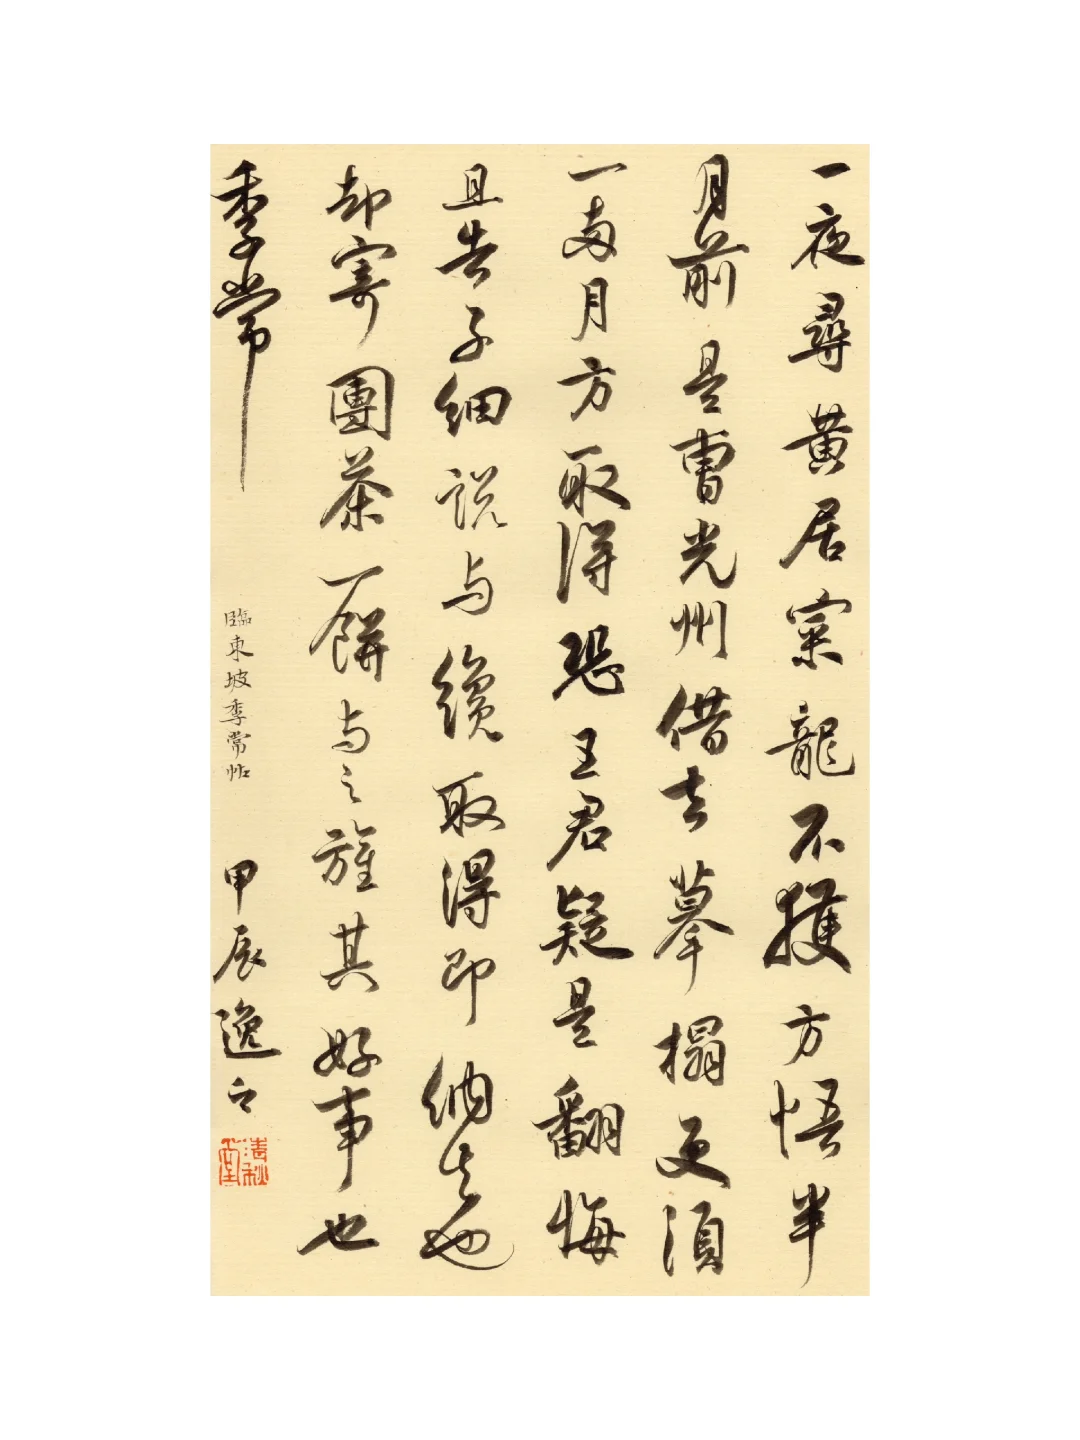 一夜尋黄居寀龍不獲方悟半
月前是曹光州借去摹搨更須
一两月方取得恐王君疑是翻悔
且告子細說与纔取得即納去也
却寄團茶一餅与之旌其好事也
季常
臨東坡季常帖
甲辰逸之
清秋堂